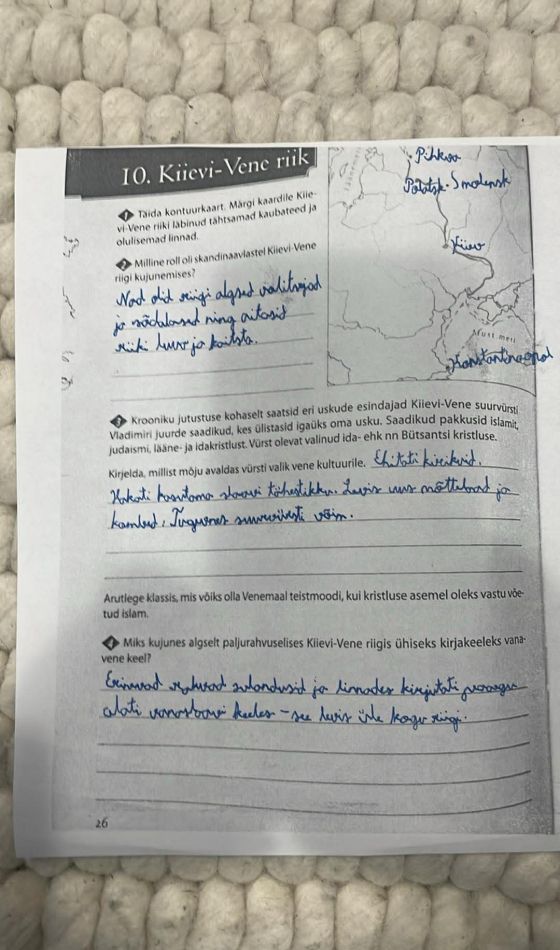 10. Kiievi-Vene riik
1 Täida kontuurkaart. Märgi kaardile Kiie-
vi-Vene riiki läbinud tähtsamad kaubateed ja
olulisemad linnad.
2 Milline roll oli skandinaavlastel Kiievi-Vene
riigi kujunemises?
Nad olid riigi algsed valitsejad
ja sõdalased ning aitasid
riiki luua ja kaitsta.
Pihkva
Polotsk Smolensk
Kiiev
Must meri
Konstantinoopol
3 Krooniku jutustuse kohaselt saatsid eri uskude esindajad Kiievi-Vene suurvürsti
Vladimiri juurde saadikud, kes ülistasid igaüks oma usku. Saadikud pakkusid islamit,
judaismi, lääne- ja idakristlust. Vürst olevat valinud ida- ehk nn Bütsantsi kristluse.
Kirjelda, millist mõju avaldas vürsti valik vene kultuurile. Ehitati kirikuid.
Hakati kasutama slaavi tähestikku. Levis uus mõttelaad ja
kombed. Tugevnes suurvürsti võim.
Arutlege klassis, mis võiks olla Venemaal teistmoodi, kui kristluse asemel oleks vastu võe-
tud islam.
4 Miks kujunes algselt paljurahvuselises Kiievi-Vene riigis ühiseks kirjakeeleks vana-
vene keel?
Erinevad rahvad sulandusid ja linnades kirjutati
alati vanaslaavi keeles - see levis üle kogu riigi.
26